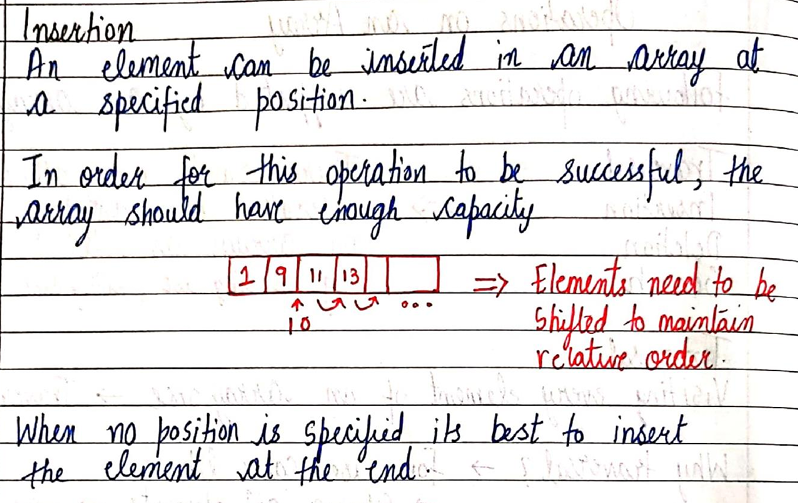 Insertion
An element can be inserted in an array at
a specified position.
In order for this operation to be successful, the
array should have enough capacity
1 9 11 13 ⇒ Elements need to be
↑ ...
10 Shifted to maintain
relative order.
When no position is specified its best to insert
the element at the end.